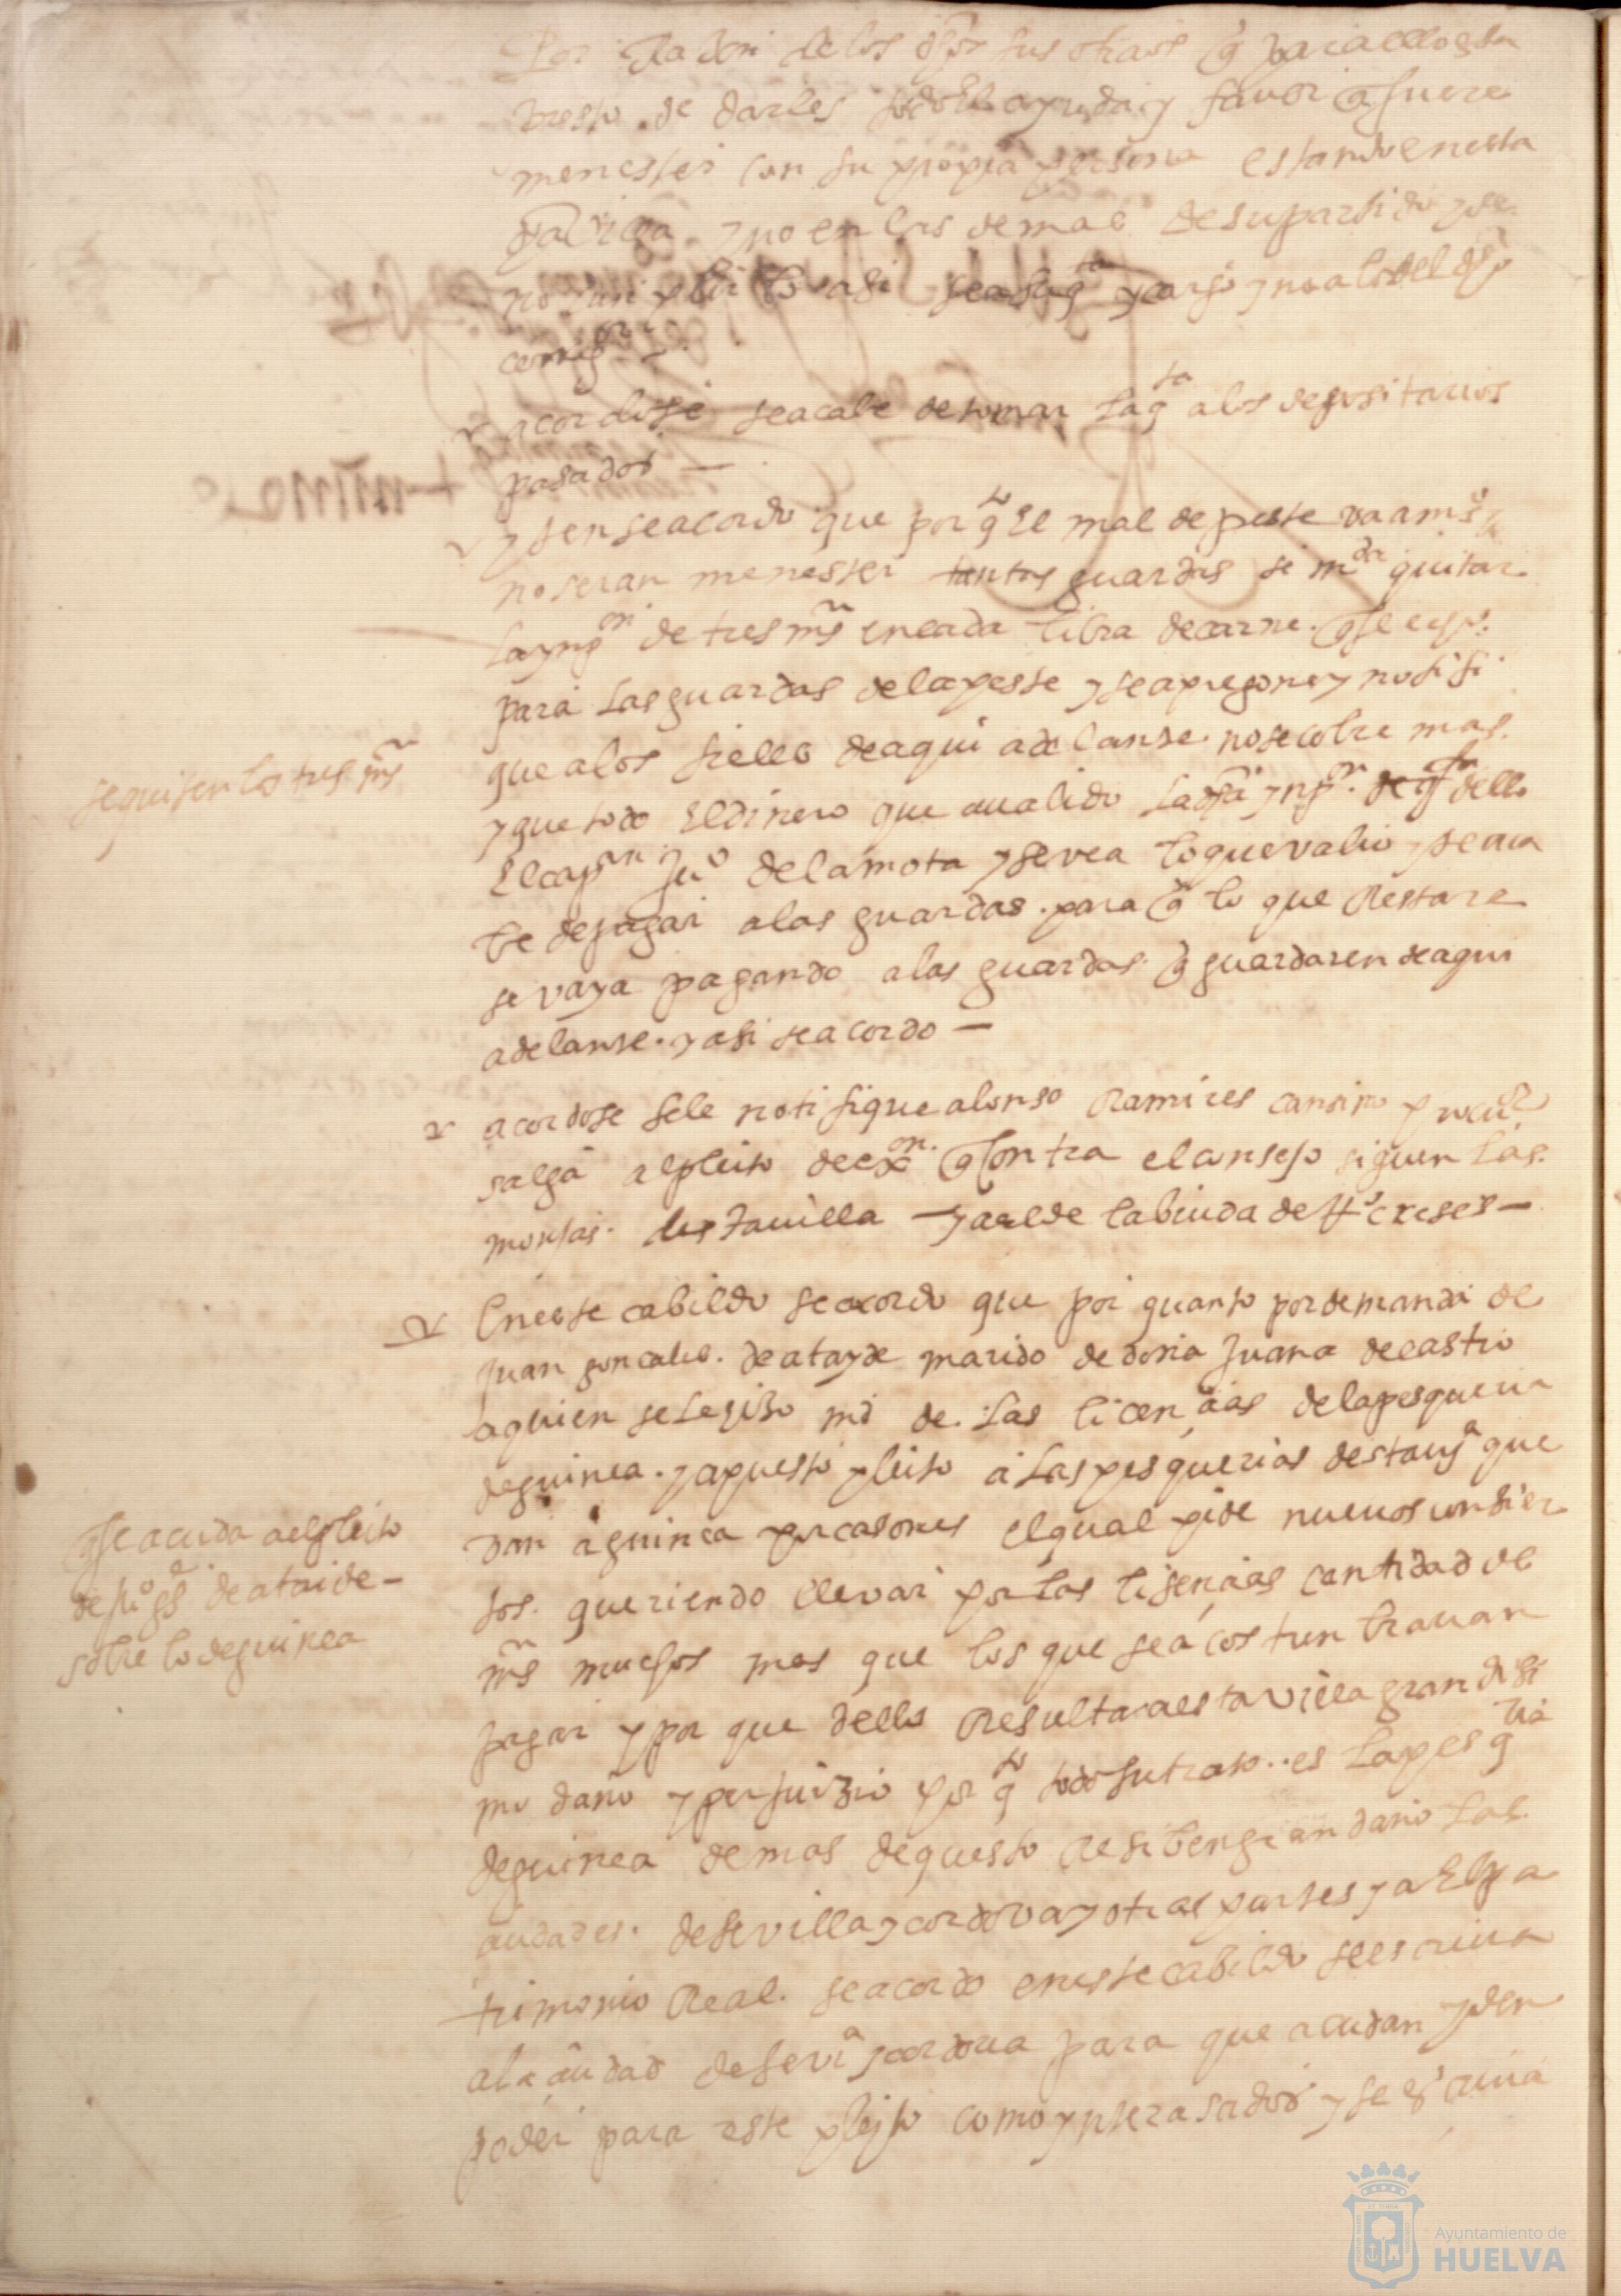 Por Razon de los dhos sus ofiaos q̃ para ello esta
presto de darles todo El ayuda y favor q̃ fuere
menester con su propia persona estando en esta
dha villa y no en las demas de su partido y de
no cunplir lo asi sea a su q.ta y cargo y no a lo del dho
correg.or
acordose se acabe de tomar la q.ta a los depositarios
pasados —
yten se acordo que por q.to El mal de peste va a m.s
no seran menester tantas guardas se m.da quitar
la ynp.on de tres mrs en cada libra de carne q̃ se
para las guardas de la peste y se apregone y notifi
que a los fieles de aqui adelante no se cobre mas
y que todo El dinero que a valido la dha ynp.on de q.ta dello
El cap.an Ju.o de la mota y se vea lo que valio y se aca
be de pagar a las guardas para q̃ lo que Restare
se vaya pagando a las guardas q̃ guardaren de aqui
adelante y asi se acordo —
se quiten los tres mrs
acordose se le notifique alonso Ramires cansino procu.or
salga al pleito de ex.on q̃ contra el consejo siguen las
monjas desta villa — y a el de la biuda de
En este cabildo se acordo que por quanto por demanda de
Juan goncales de atayde marido de doña Juana de castro
a quien se le hizo md de las licencias de la pesqueria
de guinea y a puesto pleito a las pesquerias desta vi.a que
van a guinea por casones el qual pide nuevos un
tos queriendo llevar por las lisencias cantidad de
mrs muchos mas que los que se acostunbravan
pagar y por que dello Resultara a esta villa grandisi
mo daño y perjuizio por q.to todo su trato es la pesq.ria
de guinea demas de questo Resiben gran daño las
ciudades de sevilla y cordova y otras partes y a El pa
trimonio Real se acordo en este cabildo se escriva
a la ciudad de sevi.a y cordova para que acudan y den
poder para este pleyto como ynterasados y se escriva
q̃ se acuda a el pleito
de ju.o g.s de ataide —
sobre lo de guinea
Ayuntamiento de
HUELVA